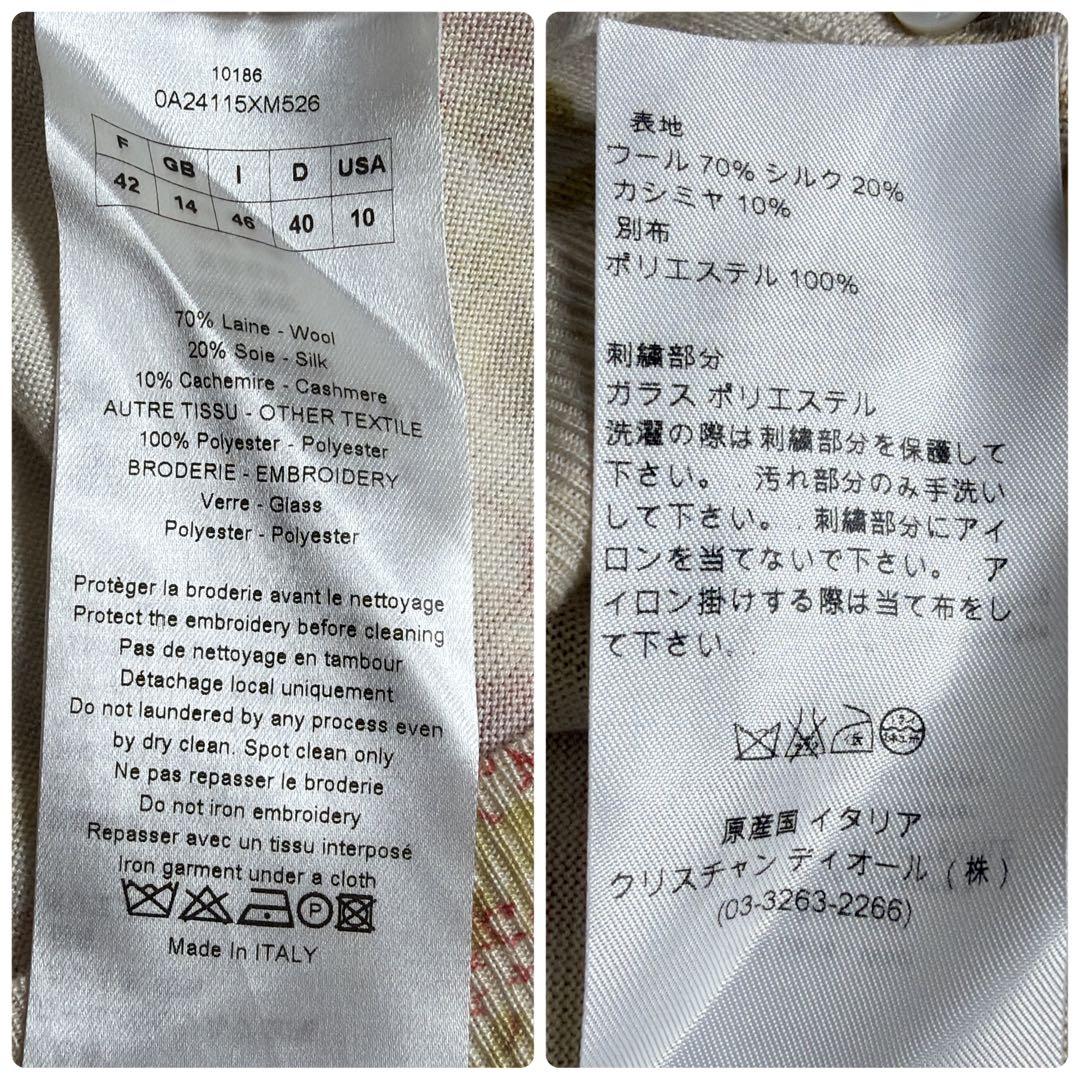 10186
0A24115XM526
F GB I D USA
42 14 46 40 10
70% Laine - Wool
20% Soie - Silk
10% Cachemire - Cashmere
AUTRE TISSU - OTHER TEXTILE
100% Polyester - Polyester
BRODERIE - EMBROIDERY
Verre - Glass
Polyester - Polyester
Protèger la broderie avant le nettoyage
Protect the embroidery before cleaning
Pas de nettoyage en tambour
Détachage local uniquement
Do not laundered by any process even
by dry clean. Spot clean only
Ne pas repasser le broderie
Do not iron embroidery
Repasser avec un tissu interposé
Iron garment under a cloth
P
Made In ITALY
表地
ウール 70% シルク 20%
カシミヤ 10%
別布
ポリエステル 100%
刺繍部分
ガラス ポリエステル
洗濯の際は刺繍部分を保護して
下さい。 汚れ部分のみ手洗い
して下さい。 刺繍部分にアイ
ロンを当てないで下さい。 ア
イロン掛けする際は当て布をし
て下さい.
原産国 イタリア
クリスチャン ディオール (株)
(03-3263-2266)